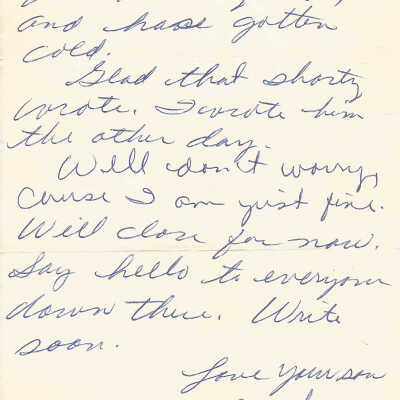 and have gotten
cold.
Glad that shorty
wrote. I wrote him
the other day.
Well don't worry,
Cause I am just fine.
Will close for now.
Say hello to everyone
down there. Write
soon.
Love Your son